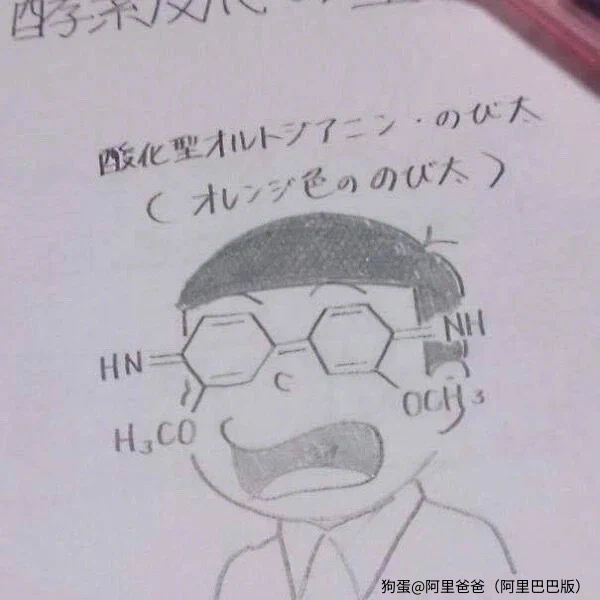 酵素反応
酸化型オルトジアニン・のび太
(オレンジ色ののび太)
HN
NH
H₃CO
OCH₃
狗蛋@阿里爸爸（阿里巴巴版）